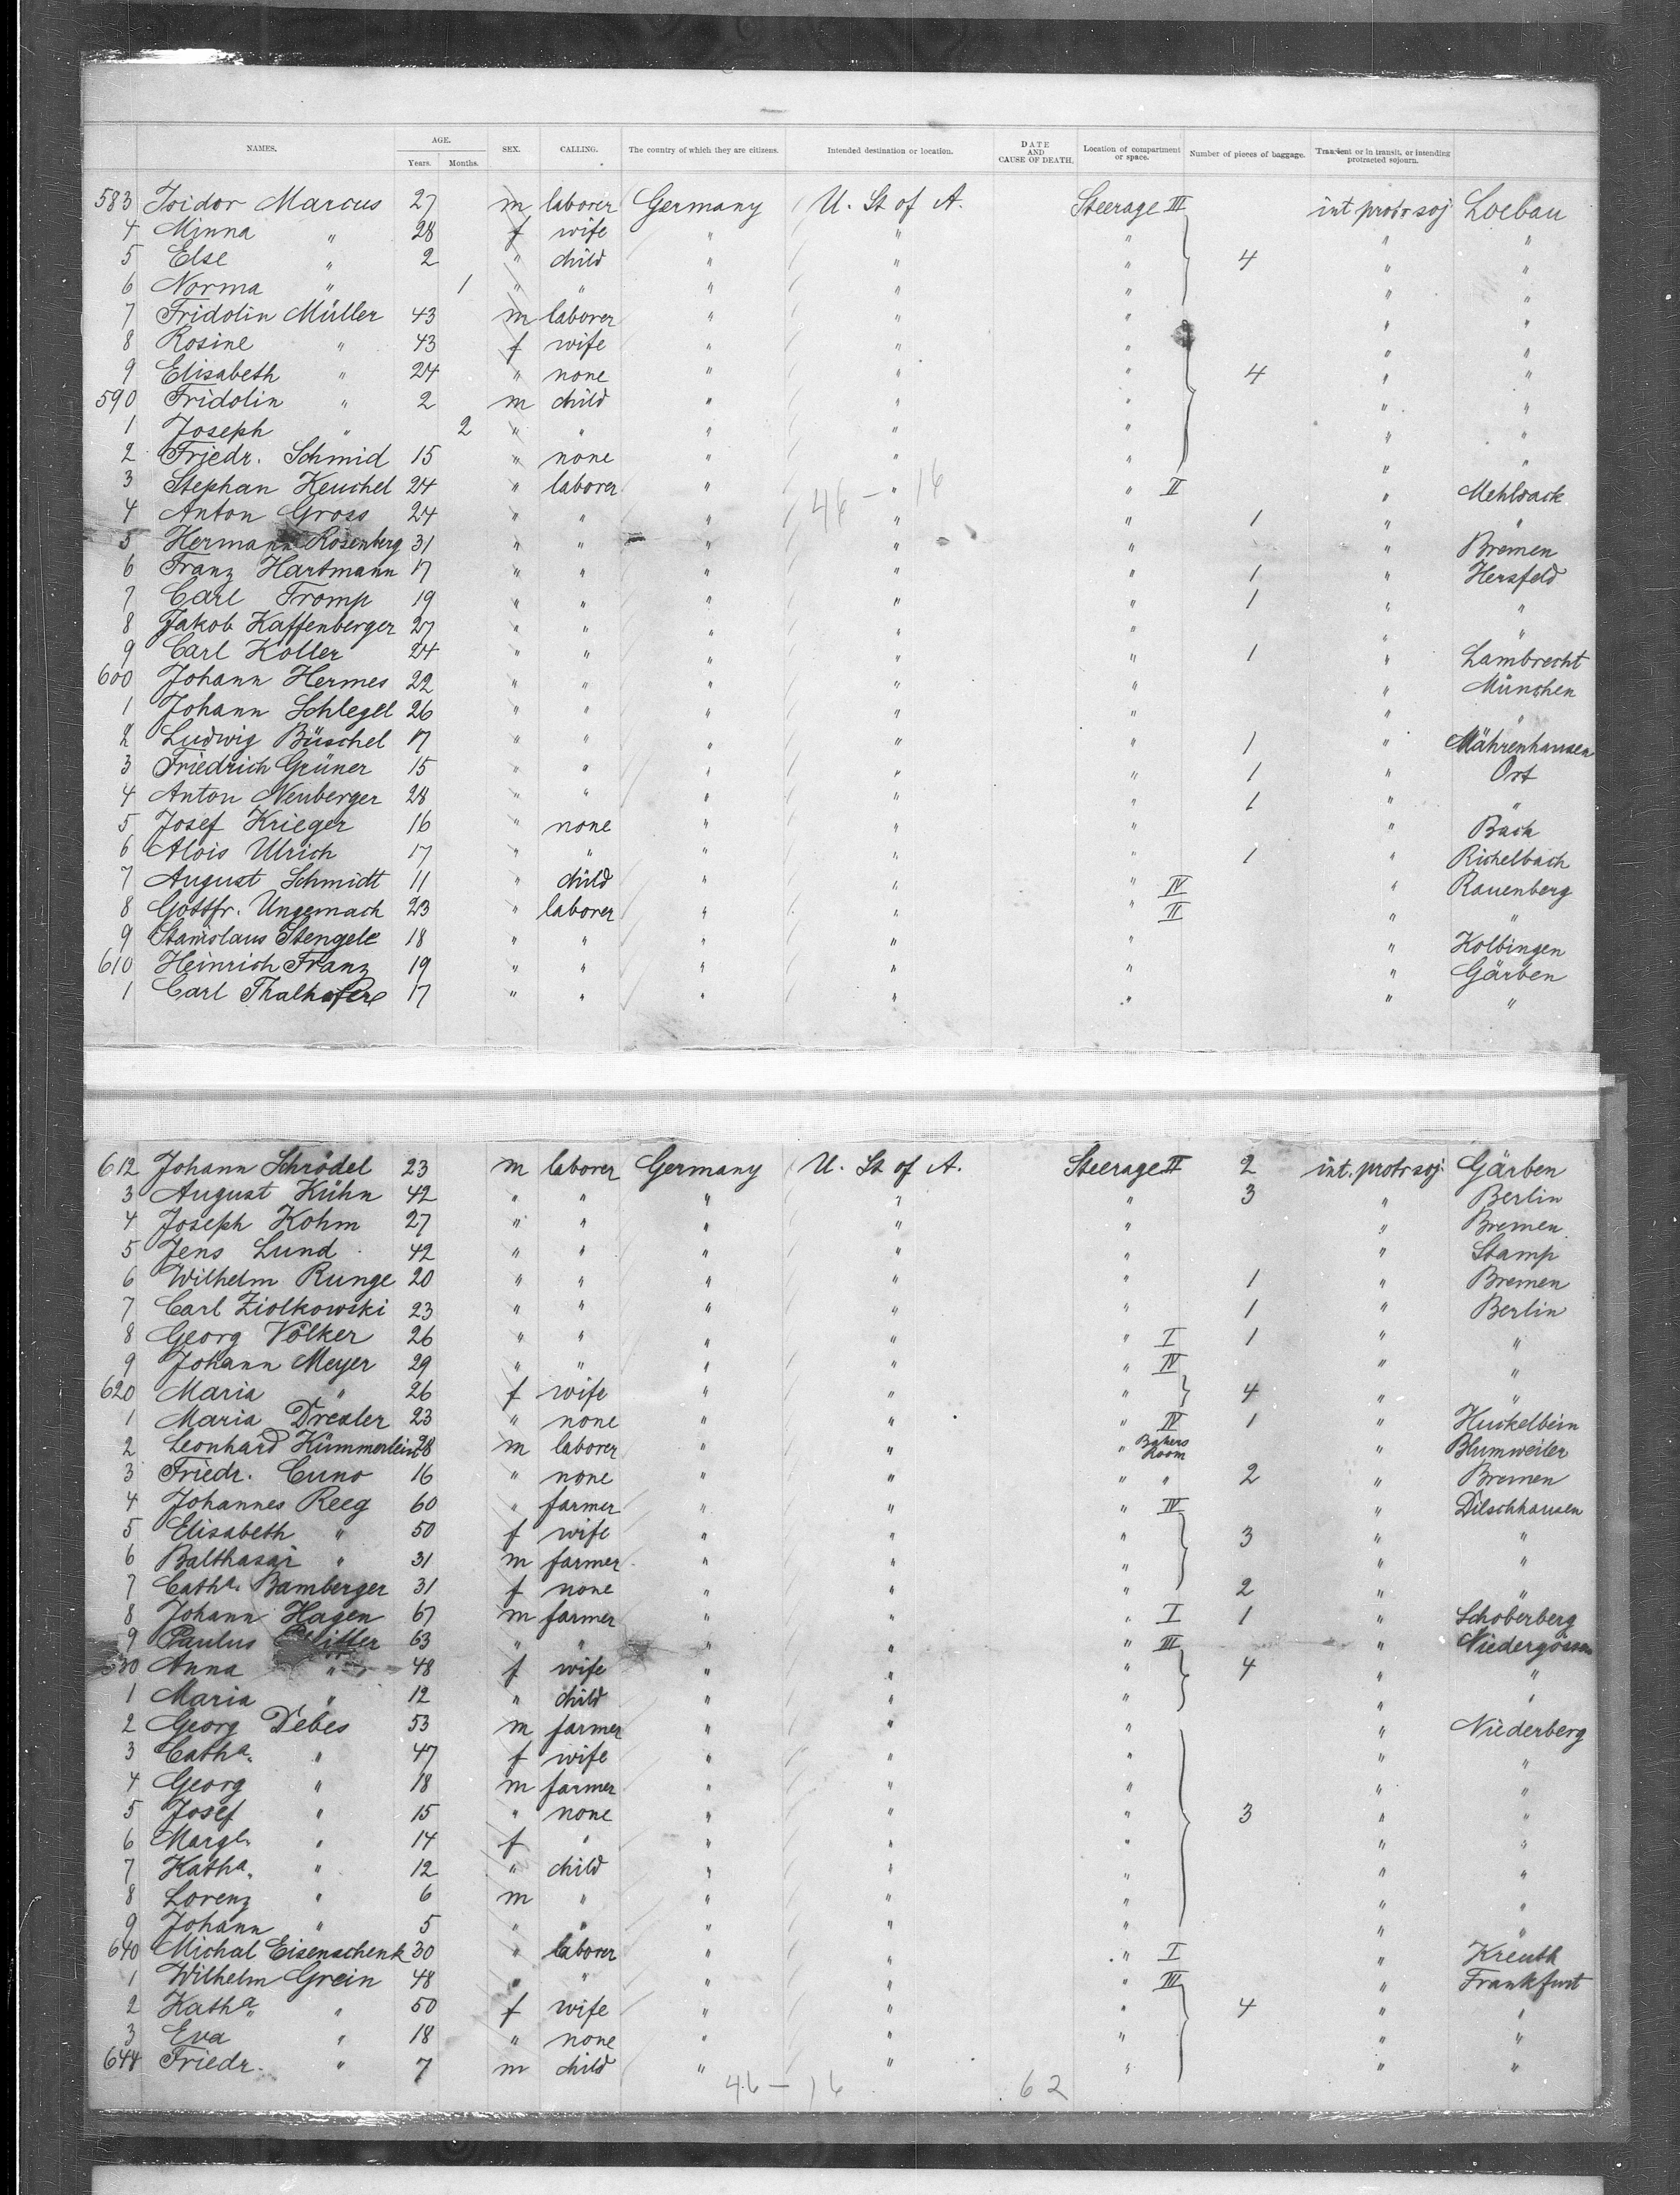 NAMES. AGE. Years. Months. SEX. CALLING. The country of which they are citizens. Intended destination or location. DATE AND CAUSE OF DEATH. Location of compartment or space. Number of pieces of baggage. Transient or in transit, or intending protracted sojourn.
583 Isidor Marcus 27 m laborer Germany U. St of A. Steerage III int protr soj Loebau
4 Minna " 28 f wife " " " " "
5 Else " 2 " child " " " 4 " "
6 Norma " 1 " " " " " " "
7 Fridolin Müller 43 m laborer " " " " "
8 Rosine " 43 f wife " " " " "
9 Elisabeth " 24 " none " " " 4 " "
590 Fridolin " 2 m child " " " " "
1 Joseph " 2 " " " " " " "
2 Friedr. Schmid 15 " none " " " " "
3 Stephan Keuchel 24 " laborer " " " II " Mehlsack
4 Anton Gross 24 " " " 46 - 16 " " 1 " "
5 Hermann Rosenberg 31 " " " " " " Bremen
6 Franz Hartmann 17 " " " " " 1 " Hersfeld
7 Carl Tromp 19 " " " " " 1 " "
8 Jakob Kaffenberger 27 " " " " " " "
9 Carl Koller 24 " " " " " 1 " Lambrecht
600 Johann Hermes 22 " " " " " " München
1 Johann Schlegel 26 " " " " " " "
2 Ludwig Büschel 17 " " " " " 1 " Mährenhausen
3 Friedrich Grüner 15 " " " " " 1 " Ort
4 Anton Neuberger 28 " " " " " 1 " "
5 Josef Krieger 16 " none " " " " Bach
6 Alois Ulrich 17 " " " " " 1 " Richelbach
7 August Schmidt 11 " child " " " IV " Rauenberg
8 Gottfr. Ungemach 23 " laborer " " " II " "
9 Stanislaus Stengele 18 " " " " " " Kolbingen
610 Heinrich Franz 19 " " " " " " Gärben
1 Carl Thalhofer 17 " " " " " " "
612 Johann Schrödel 23 m laborer Germany U. St of A. Steerage II 2 int. protr soj. Gärben
3 August Kühn 42 " " " " " 3 " Berlin
4 Joseph Kohm 27 " " " " " " Bremen
5 Jens Lund 42 " " " " " " Stamp
6 Wilhelm Runge 20 " " " " " 1 " Bremen
7 Carl Ziolkowski 23 " " " " " 1 " Berlin
8 Georg Völker 26 " " " " " I 1 " "
9 Johann Meyer 29 " " " " " IV " "
620 Maria " 26 f wife " " " 4 " "
1 Maria Drexler 23 " none " " " IV 1 " Huckelbein
2 Leonhard Kümmerlein 28 m laborer " " " Bakers Room " Blumweiler
3 Friedr. Cuno 16 " none " " " " 2 " Bremen
4 Johannes Reeg 60 " farmer " " " IV " Dilschhausen
5 Elisabeth " 50 f wife " " " 3 " "
6 Balthasar " 31 m farmer " " " " "
7 Catha. Bamberger 31 f none " " " 2 " "
8 Johann Hagen 67 m farmer " " " I 1 " Schoberberg
9 Paulus 63 " " " " " III "
630 Anna " 48 f wife " " " 4 " "
1 Maria " 12 " child " " " " "
2 Georg Debes 53 m farmer " " " " Niederberg
3 Catha. " 47 f wife " " " " "
4 Georg " 18 m farmer " " " " "
5 Josef " 15 " none " " " 3 " "
6 Margt. " 14 f " " " " " "
7 Katha. " 12 " child " " " " "
8 Lorenz " 6 m " " " " " "
9 Johann " 5 " " " " " " "
640 Michal Eisenschenk 30 " laborer " " " I " Kreuth
1 Wilhelm Grein 48 " " " " " III " Frankfurt
2 Katha. " 50 f wife " " " 4 " "
3 Eva " 18 " none " " " " "
644 Friedr. " 7 m child " " " " "
46 - 16 62